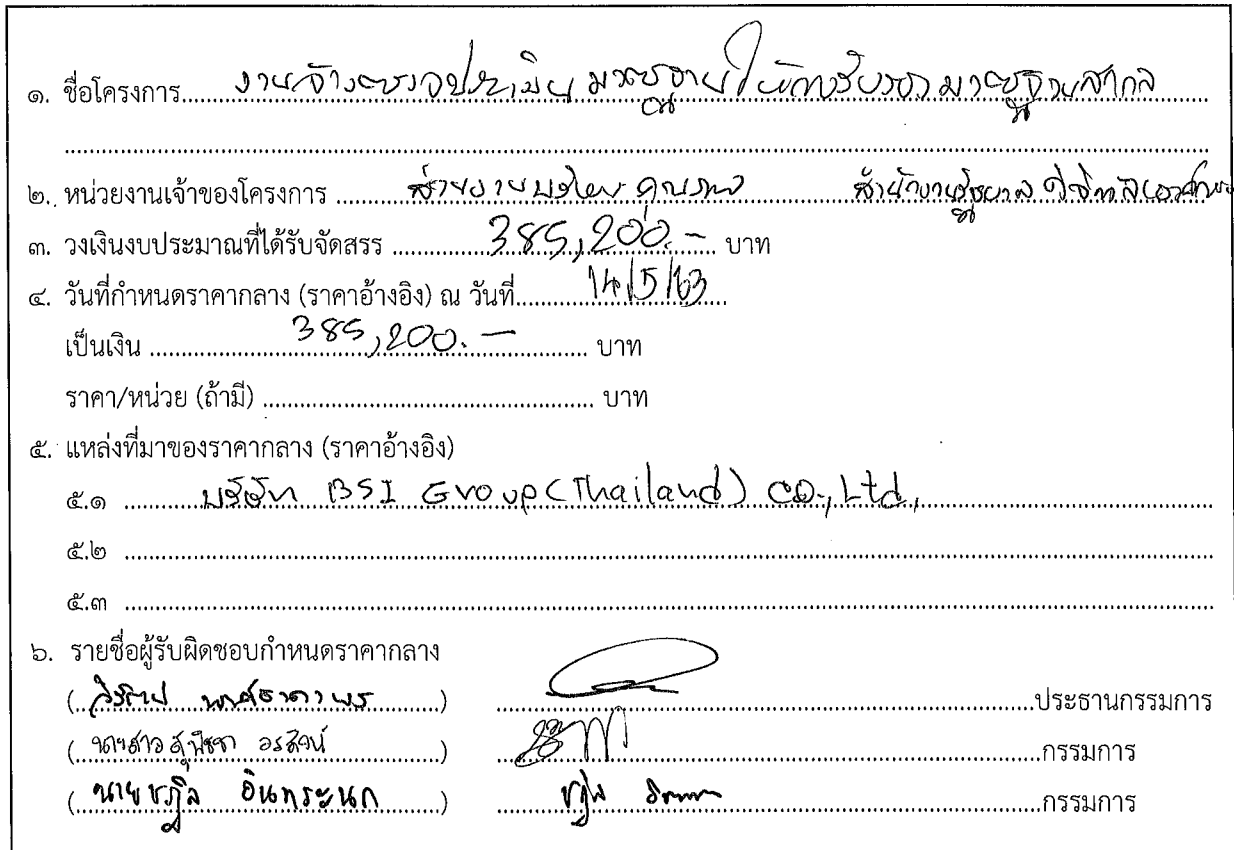 ๑. ชื่อโครงการ งานจ้างตรวจประเมินมาตรฐานให้การรับรองมาตรฐานสากล
๒. หน่วยงานเจ้าของโครงการ ส่วนงานบริหารคุณภาพ สำนักงานรัฐบาลดิจิทัล
๓. วงเงินงบประมาณที่ได้รับจัดสรร 385,200.- บาท
๔. วันที่กำหนดราคากลาง (ราคาอ้างอิง) ณ วันที่ 14/5/63
เป็นเงิน 385,200.- บาท
ราคา/หน่วย (ถ้ามี) บาท
๕. แหล่งที่มาของราคากลาง (ราคาอ้างอิง)
๕.๑ บริษัท BSI Group (Thailand) CO., Ltd,
๕.๒
๕.๓
๖. รายชื่อผู้รับผิดชอบกำหนดราคากลาง
( ) ประธานกรรมการ
( นางสาว ) กรรมการ
( นายชฎิล อินทระนก ) กรรมการ